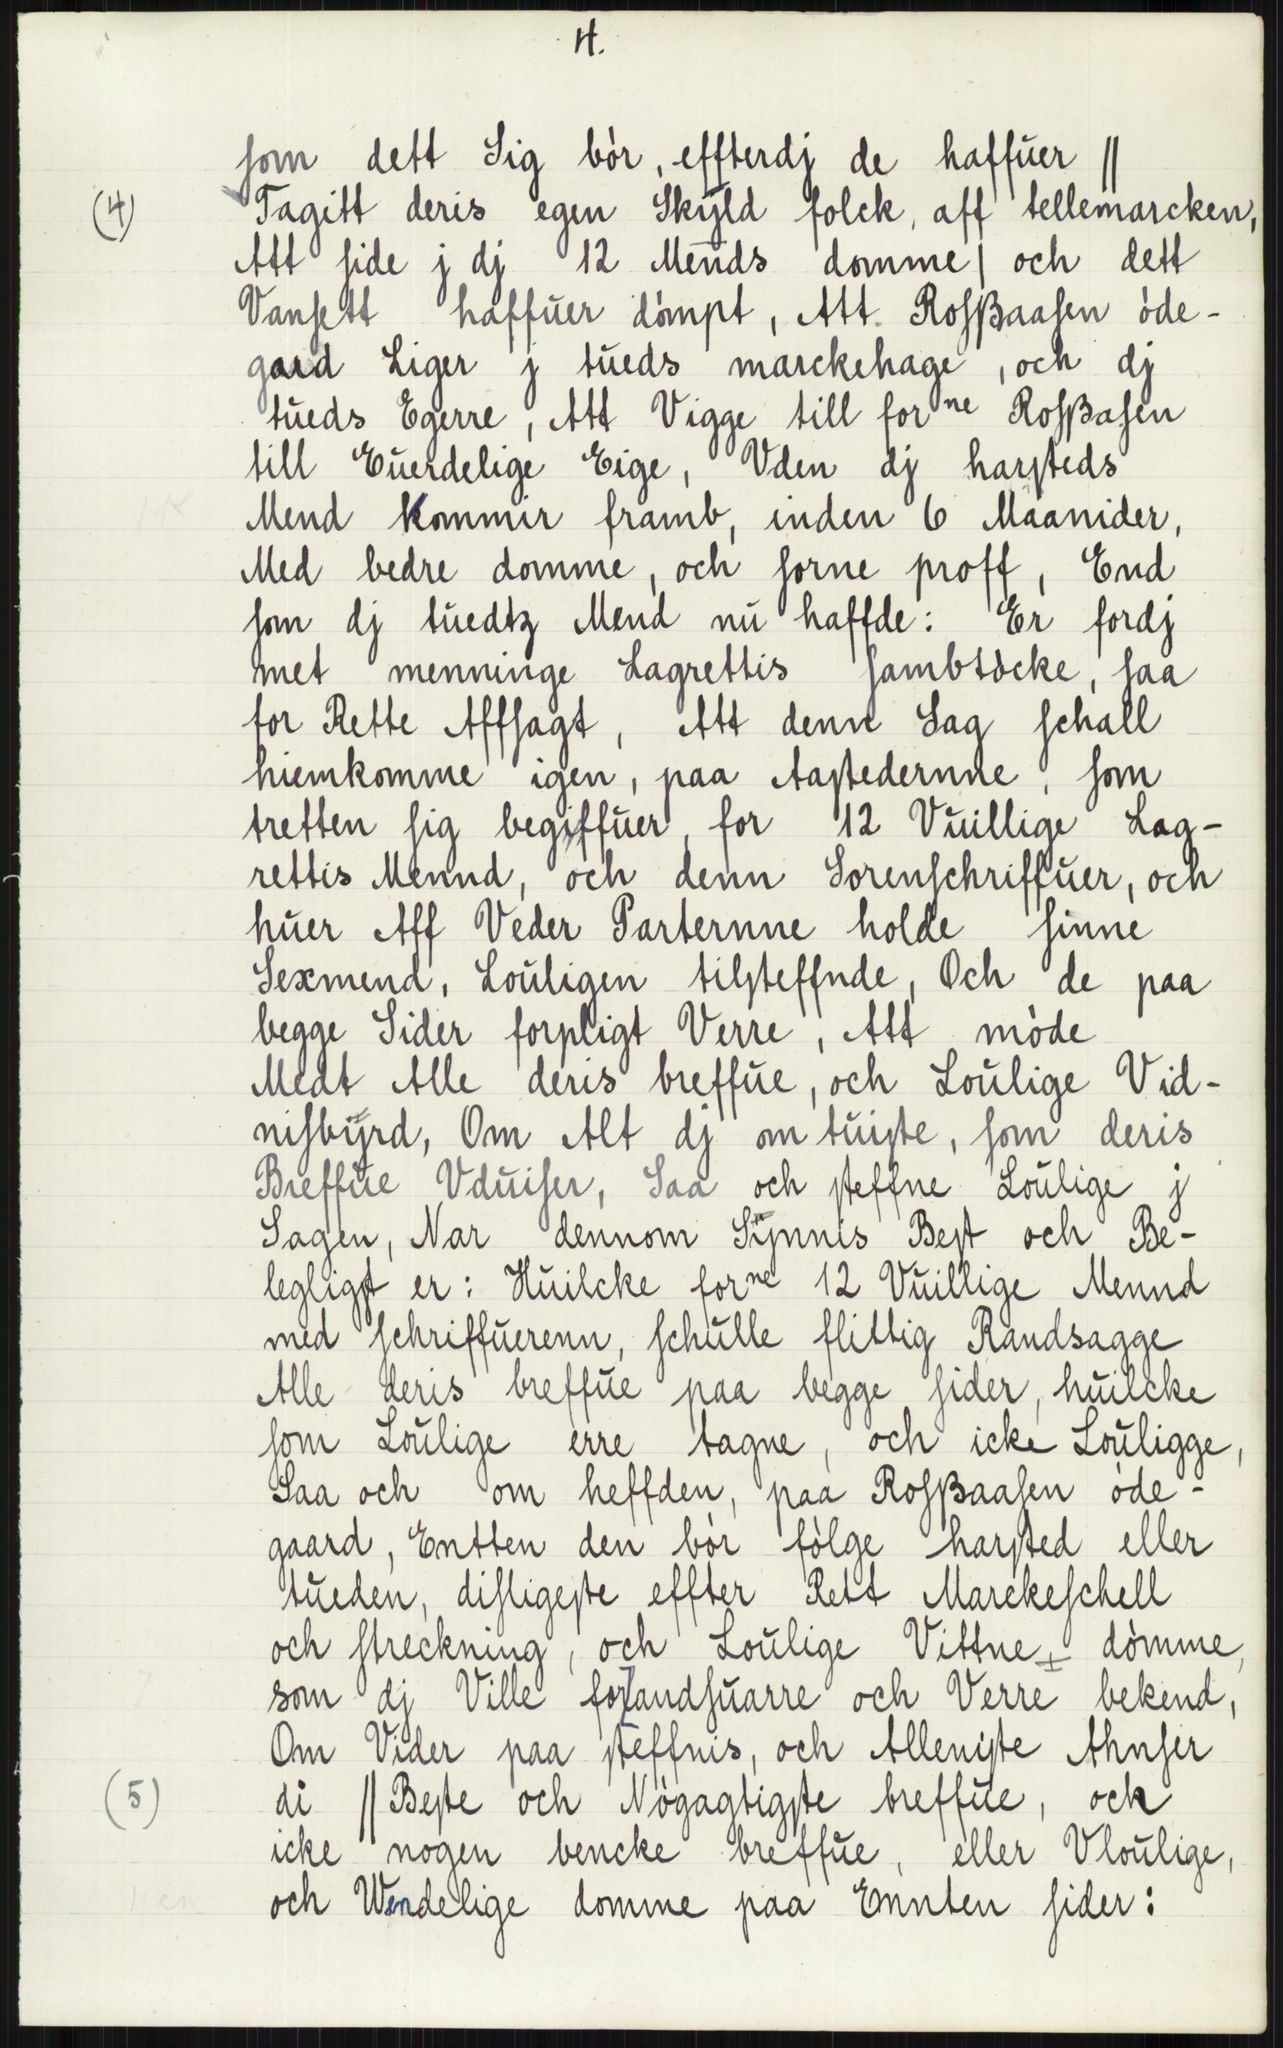 4.
som dett Sig bòr, effterdj de haffuer //
(4) Tagitt deris egen Skÿld folck, aff tellemarcken,
Att side j dj 12 Mends domme / och dett
Vansett haffuer dòmpt, Att Rosßaasen òde-
gaard Liger j tueds marckehage, och dj
tueds Egerre, Att Vigge till forne Rosßasen
till Euerdelige Eige, Vden dj harsteds
Mend kommir framb, inden 6 Maanider,
Med bedre domme, och forne proff, End
som dj tuedtz Mend nu haffde: Er fordj
met menninge Lagrettis sambtòcke, saa
for Rette Affsagt, Att denn Sag schall
hiemkomme igen, paa Aastedernne, som
tretten sig begiffuer, for 12 Vuillige Lag-
rettis Mennd, och denn Sorenschriffuer, och
huer Aff Veder Parternne holde sinne
Sexmend, Louligen tilsteffnde, Och de paa
begge Sider forpligt Verre, Att mòde
Medt Alle deris breffue, och Loulige Vid-
nisbÿrd, Om Alt dj om tuiste, som deris
Breffue Vduiser, Saa och steffne Loulige j
Sagen, Nar dennom Sÿnnis Best och Be-
legligst er: Huilcke forne 12 Vuillige Mennd
med schriffuerenn, schulle flittig Randsagge
Alle deris breffue paa begge sider, huilcke
som Loulige erre tagne, och icke Louligge,
Saa och om heffden, paa Rosßaasen òde-
gaard, Entten den bòr fòlge harsted eller
tueden, disligeste effter Rett Marckeschell
och streckning, och Loulige Vittne + dòmme,
som dj Ville for/andsuarre och Verre bekend,
Om Vider paa steffnis, och Alleniste Ahnser
(5) di // Beste och Nògagtigste breffue, ock
icke nogen bencke breffue, eller Vloulige,
och Wendelige domme paa Ennten sider: